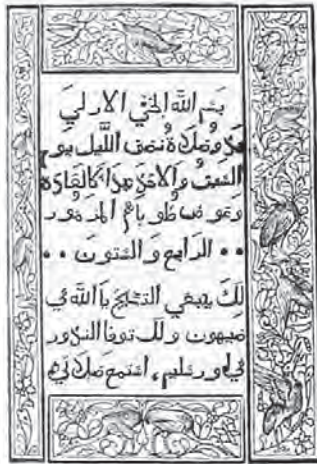 بسم الله الحي الازلي
صلاة نصف الليل يوم
السبت والاحد هذا كالعادة
وعوض طوباهم المزمور
•• الرابع والستون ••
لك ينبغي التسبيح يا الله في
صهيون ولك توفا النذور
في اورشليم، استمع صلاتي